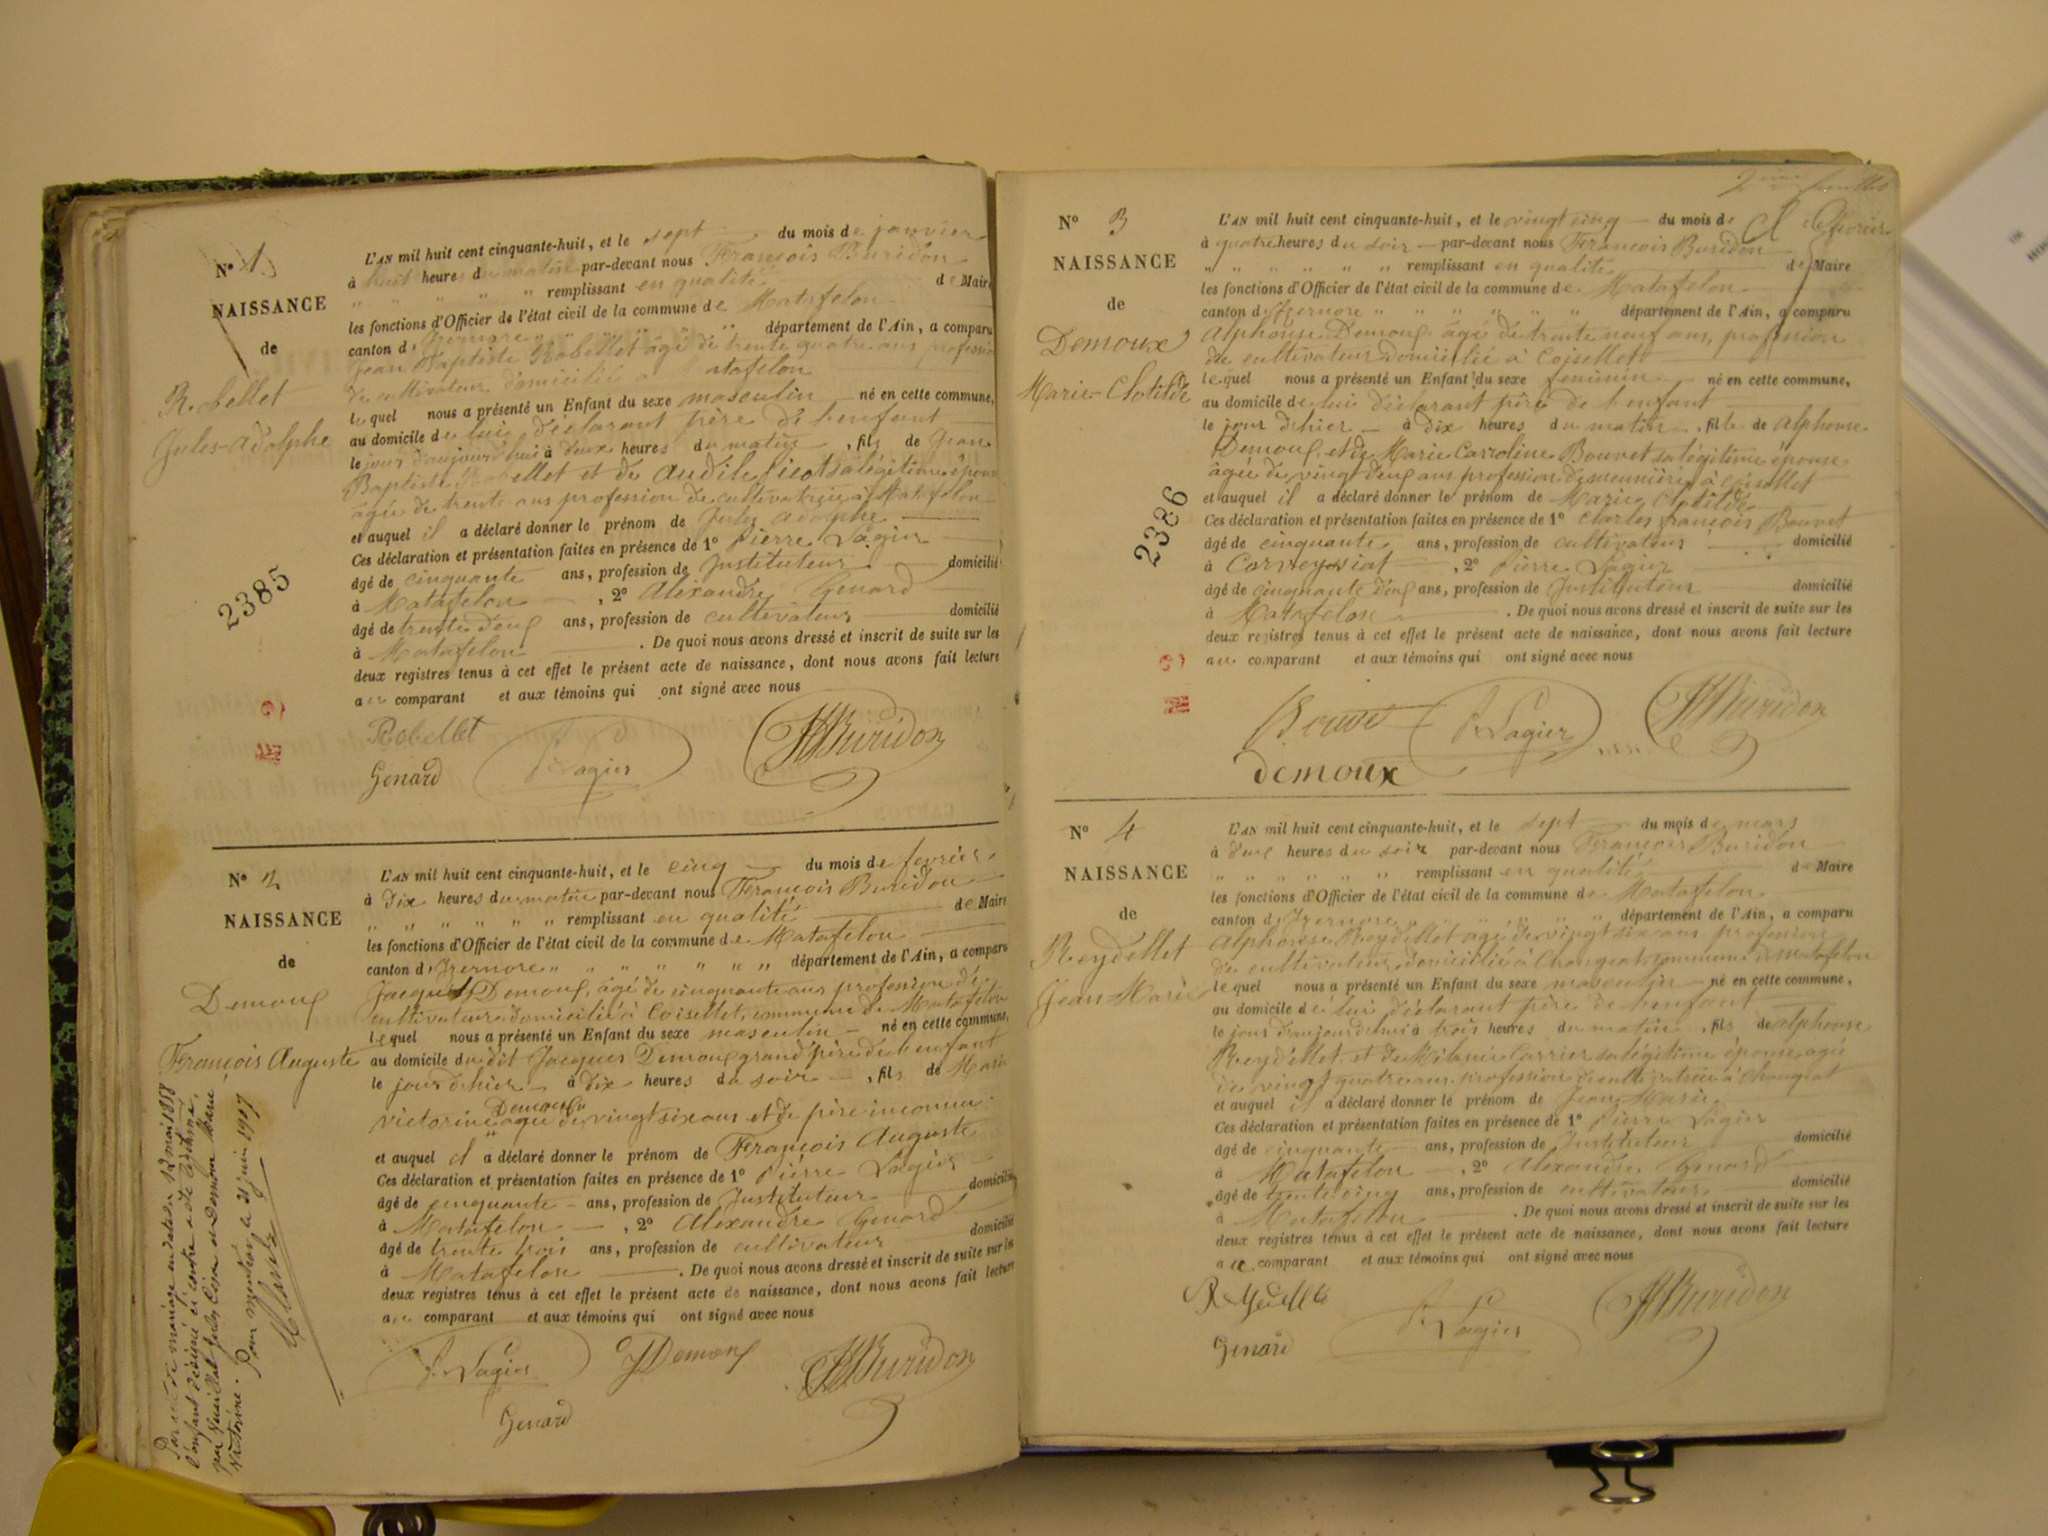 N° 1
NAISSANCE
de
Robellet
Jules-Adolphe
2385
L'AN mil huit cent cinquante-huit, et le sept du mois de janvier
à huit heures du matin par-devant nous François Buridon
" " " " " remplissant en qualité de Maire
les fonctions d'Officier de l'état civil de la commune de Matafelon
canton d'Izernore " " " " " département de l'Ain, a comparu
Jean Baptiste Robellet âgé de trente quatre ans, profession
de cultivateur domicilié à Matafelon
lequel nous a présenté un Enfant du sexe masculin né en cette commune,
au domicile de lui déclarant père de l'enfant
le jour d'aujourd'hui à deux heures du matin, fils de Jean
Baptiste Robellet et de sa légitime épouse
âgée de trente ans profession de cultivatrice à Matafelon
et auquel il a déclaré donner le prénom de Jules Adolphe
Ces déclaration et présentation faites en présence de 1° Pierre Lagier
âgé de cinquante ans, profession de Instituteur domicilié
à Matafelon, 2° Alexandre Genard
âgé de trente deux ans, profession de cultivateur domicilié
à Matafelon. De quoi nous avons dressé et inscrit de suite sur les
deux registres tenus à cet effet le présent acte de naissance, dont nous avons fait lecture
au comparant et aux témoins qui ont signé avec nous
Robellet
Genard P. Lagier Buridon
N° 2
NAISSANCE
de
Demoux
François Auguste
Par acte de mariage en date du 12 mai 1888
l'enfant désigné ci contre a été légitimé
par Jules César et Demoux Marie
Victorine. Pour mention, le 21 juin 1907
L'AN mil huit cent cinquante-huit, et le cinq du mois de fevrier
à dix heures du matin par-devant nous François Buridon
" " " " " remplissant en qualité de Maire
les fonctions d'Officier de l'état civil de la commune de Matafelon
canton d'Izernore " " " " " " département de l'Ain, a comparu
Jacques Demoux, âgé de cinquante ans profession de
cultivateur domicilié à Coisellet, commune de Matafelon
lequel nous a présenté un Enfant du sexe masculin né en cette commune,
au domicile du dit Jacques Demoux grand père de l'enfant
le jour d'hier à dix heures du soir, fils de Marie
Demoux
victorine âgée de vingt six ans et de père inconnu
et auquel il a déclaré donner le prénom de François Auguste
Ces déclaration et présentation faites en présence de 1° Pierre Lagier
âgé de cinquante ans, profession de Instituteur domicilié
à Matafelon, 2° Alexandre Genard
âgé de trente trois ans, profession de cultivateur domicilié
à Matafelon. De quoi nous avons dressé et inscrit de suite sur les
deux registres tenus à cet effet le présent acte de naissance, dont nous avons fait lecture
au comparant et aux témoins qui ont signé avec nous
P. Lagier J Demoux Buridon
Genard
2ème feuillet
N° 3
NAISSANCE
de
Demoux
Marie-Clotilde
2386
L'AN mil huit cent cinquante-huit, et le vingt cinq du mois de fevrier
à quatre heures du soir par-devant nous François Buridon
" " " " " " remplissant en qualité de Maire
les fonctions d'Officier de l'état civil de la commune de Matafelon
canton d'Izernore " " " " " " département de l'Ain, a comparu
Alphonse Demoux âgé de trente neuf ans, profession
de cultivateur domicilié à Coisellet
lequel nous a présenté un Enfant du sexe feminin né en cette commune,
au domicile de lui déclarant père de l'enfant
le jour d'hier à dix heures du matin, fille de Alphonse
Demoux et de Marie Carroline Bouvet sa légitime épouse
âgée de vingt deux ans profession de meunière à Coisellet
et auquel il a déclaré donner le prénom de Marie Clotilde
Ces déclaration et présentation faites en présence de 1° Charles François Bouvet
âgé de cinquante ans, profession de cultivateur domicilié
à Corveyssiat, 2° Pierre Lagier
âgé de cinquante deux ans, profession de Instituteur domicilié
à Matafelon. De quoi nous avons dressé et inscrit de suite sur les
deux registres tenus à cet effet le présent acte de naissance, dont nous avons fait lecture
au comparant et aux témoins qui ont signé avec nous
Bouvet P. Lagier Buridon
demoux
N° 4
NAISSANCE
de
Reydellet
Jean Marie
L'AN mil huit cent cinquante-huit, et le sept du mois de mars
à deux heures du soir par-devant nous François Buridon
" " " " " " remplissant en qualité de Maire
les fonctions d'Officier de l'état civil de la commune de Matafelon
canton d'Izernore " " " " " " département de l'Ain, a comparu
Alphonse Reydellet âgé de vingt six ans profession
de cultivateur domicilié à Changeat commune de Matafelon
lequel nous a présenté un Enfant du sexe masculin né en cette commune,
au domicile de lui déclarant père de l'enfant
le jour d'aujourdhui à trois heures du matin, fils de alphonse
Reydellet et de Mélanie Carrier sa légitime épouse agée
de vingt quatre ans profession de cultivatrice à Changeat
et auquel il a déclaré donner le prénom de Jean Marie
Ces déclaration et présentation faites en présence de 1° Pierre Lagier
âgé de cinquante ans, profession de Instituteur domicilié
à Matafelon, 2° Alexandre Genard
âgé de trente cinq ans, profession de cultivateur domicilié
à Matafelon. De quoi nous avons dressé et inscrit de suite sur les
deux registres tenus à cet effet le présent acte de naissance, dont nous avons fait lecture
au comparant et aux témoins qui ont signé avec nous
Reydellet
Genard P. Lagier Buridon